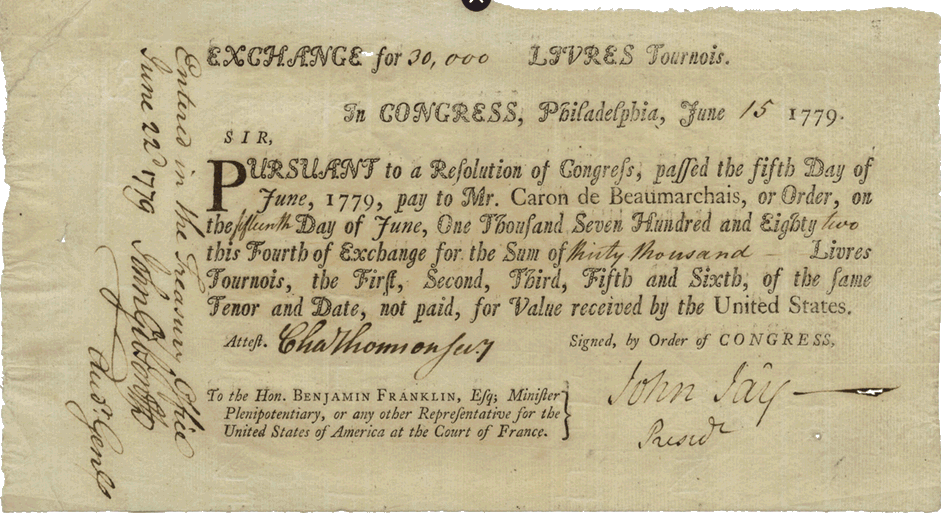 EXCHANGE for 30,000 LIVRES Tournois.
In CONGRESS, Philadelphia, June 15 1779.
SIR,
PURSUANT to a Reſolution of Congreſs, paſſed the fifth Day of
June, 1779, pay to Mr. Caron de Beaumarchais, or Order, on
the fifteenth Day of June, One Thouſand Seven Hundred and Eighty two
this Fourth of Exchange for the Sum of thirty thousand — Livres
Tournois, the Firſt, Second, Third, Fifth and Sixth, of the ſame
Tenor and Date, not paid, for Value received by the United States.
Atteſt. Cha Thomson secy
Signed, by Order of CONGRESS,
John Jay
Presidt
To the Hon. BENJAMIN FRANKLIN, Eſq; Miniſter
Plenipotentiary, or any other Repreſentative for the
United States of America at the Court of France.
Entered in the Treasury Office
June 22d 1779
John Gibson
Audr. Genl